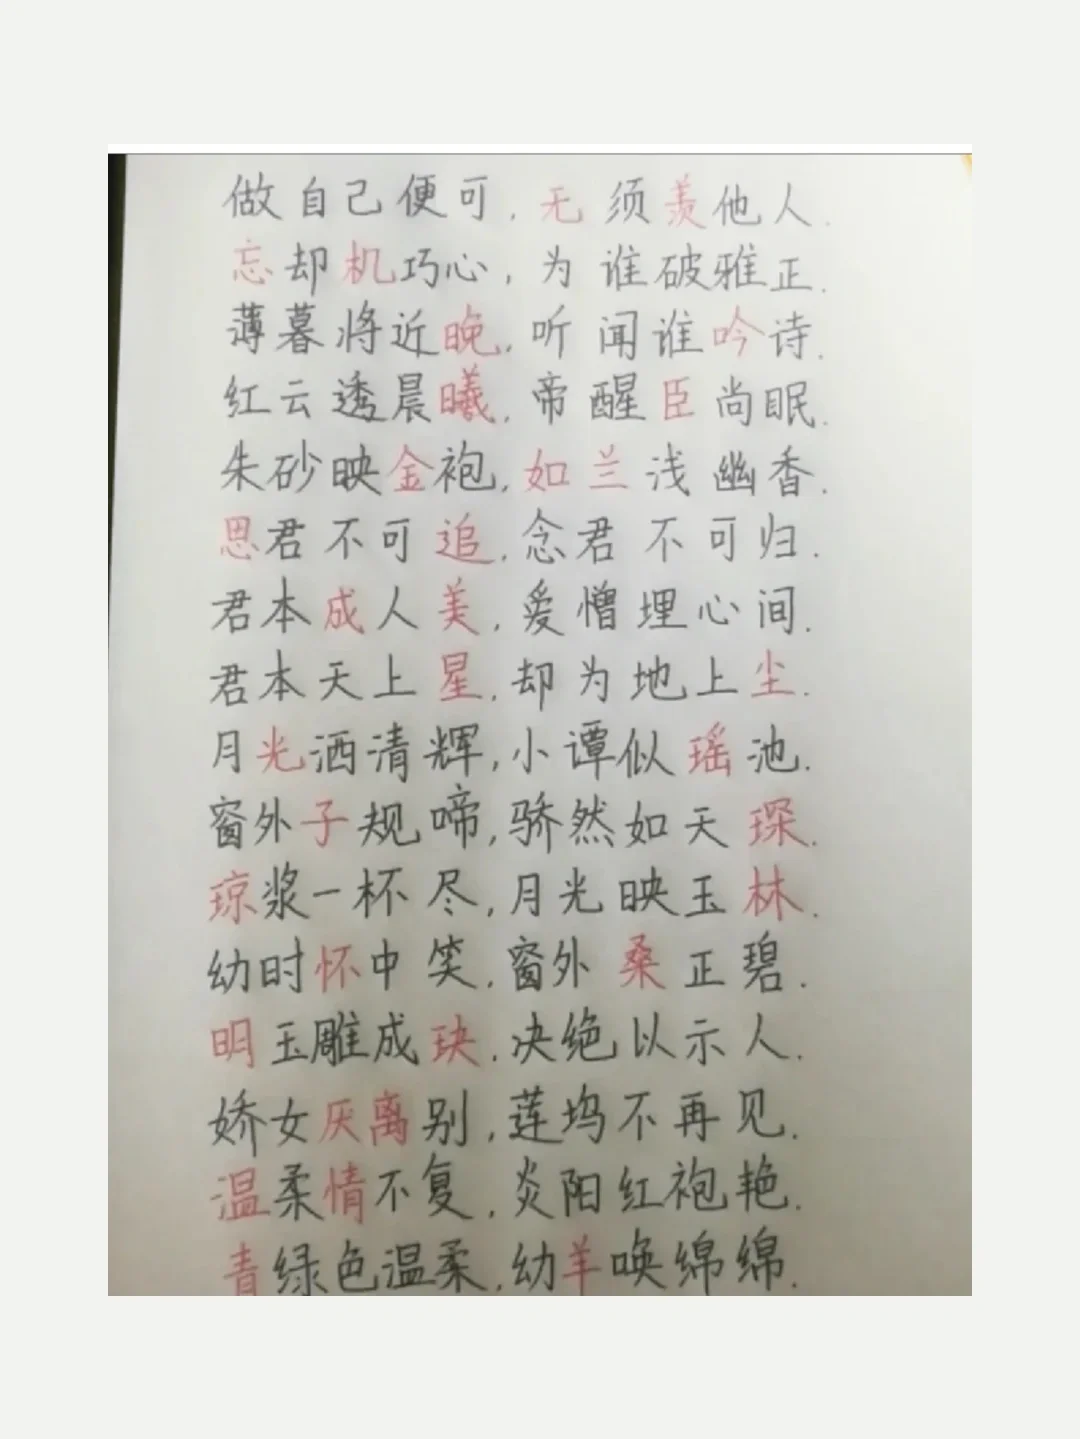 做自己便可，无须羡他人.
忘却机巧心，为谁破雅正.
薄暮将近晚，听闻谁吟诗.
红云透晨曦，帝醒臣尚眠.
朱砂映金袍，如兰浅幽香.
思君不可追，念君不可归.
君本成人美，爱憎埋心间.
君本天上星，却为地上尘.
月光洒清辉，小谭似瑶池.
窗外子规啼，骄然如天琛.
琼浆一杯尽，月光映玉林.
幼时怀中笑，窗外桑正碧.
明玉雕成玦，决绝以示人.
娇女厌离别，莲坞不再见.
温柔情不复，炎阳红袍艳.
青绿色温柔，幼羊唤绵绵.